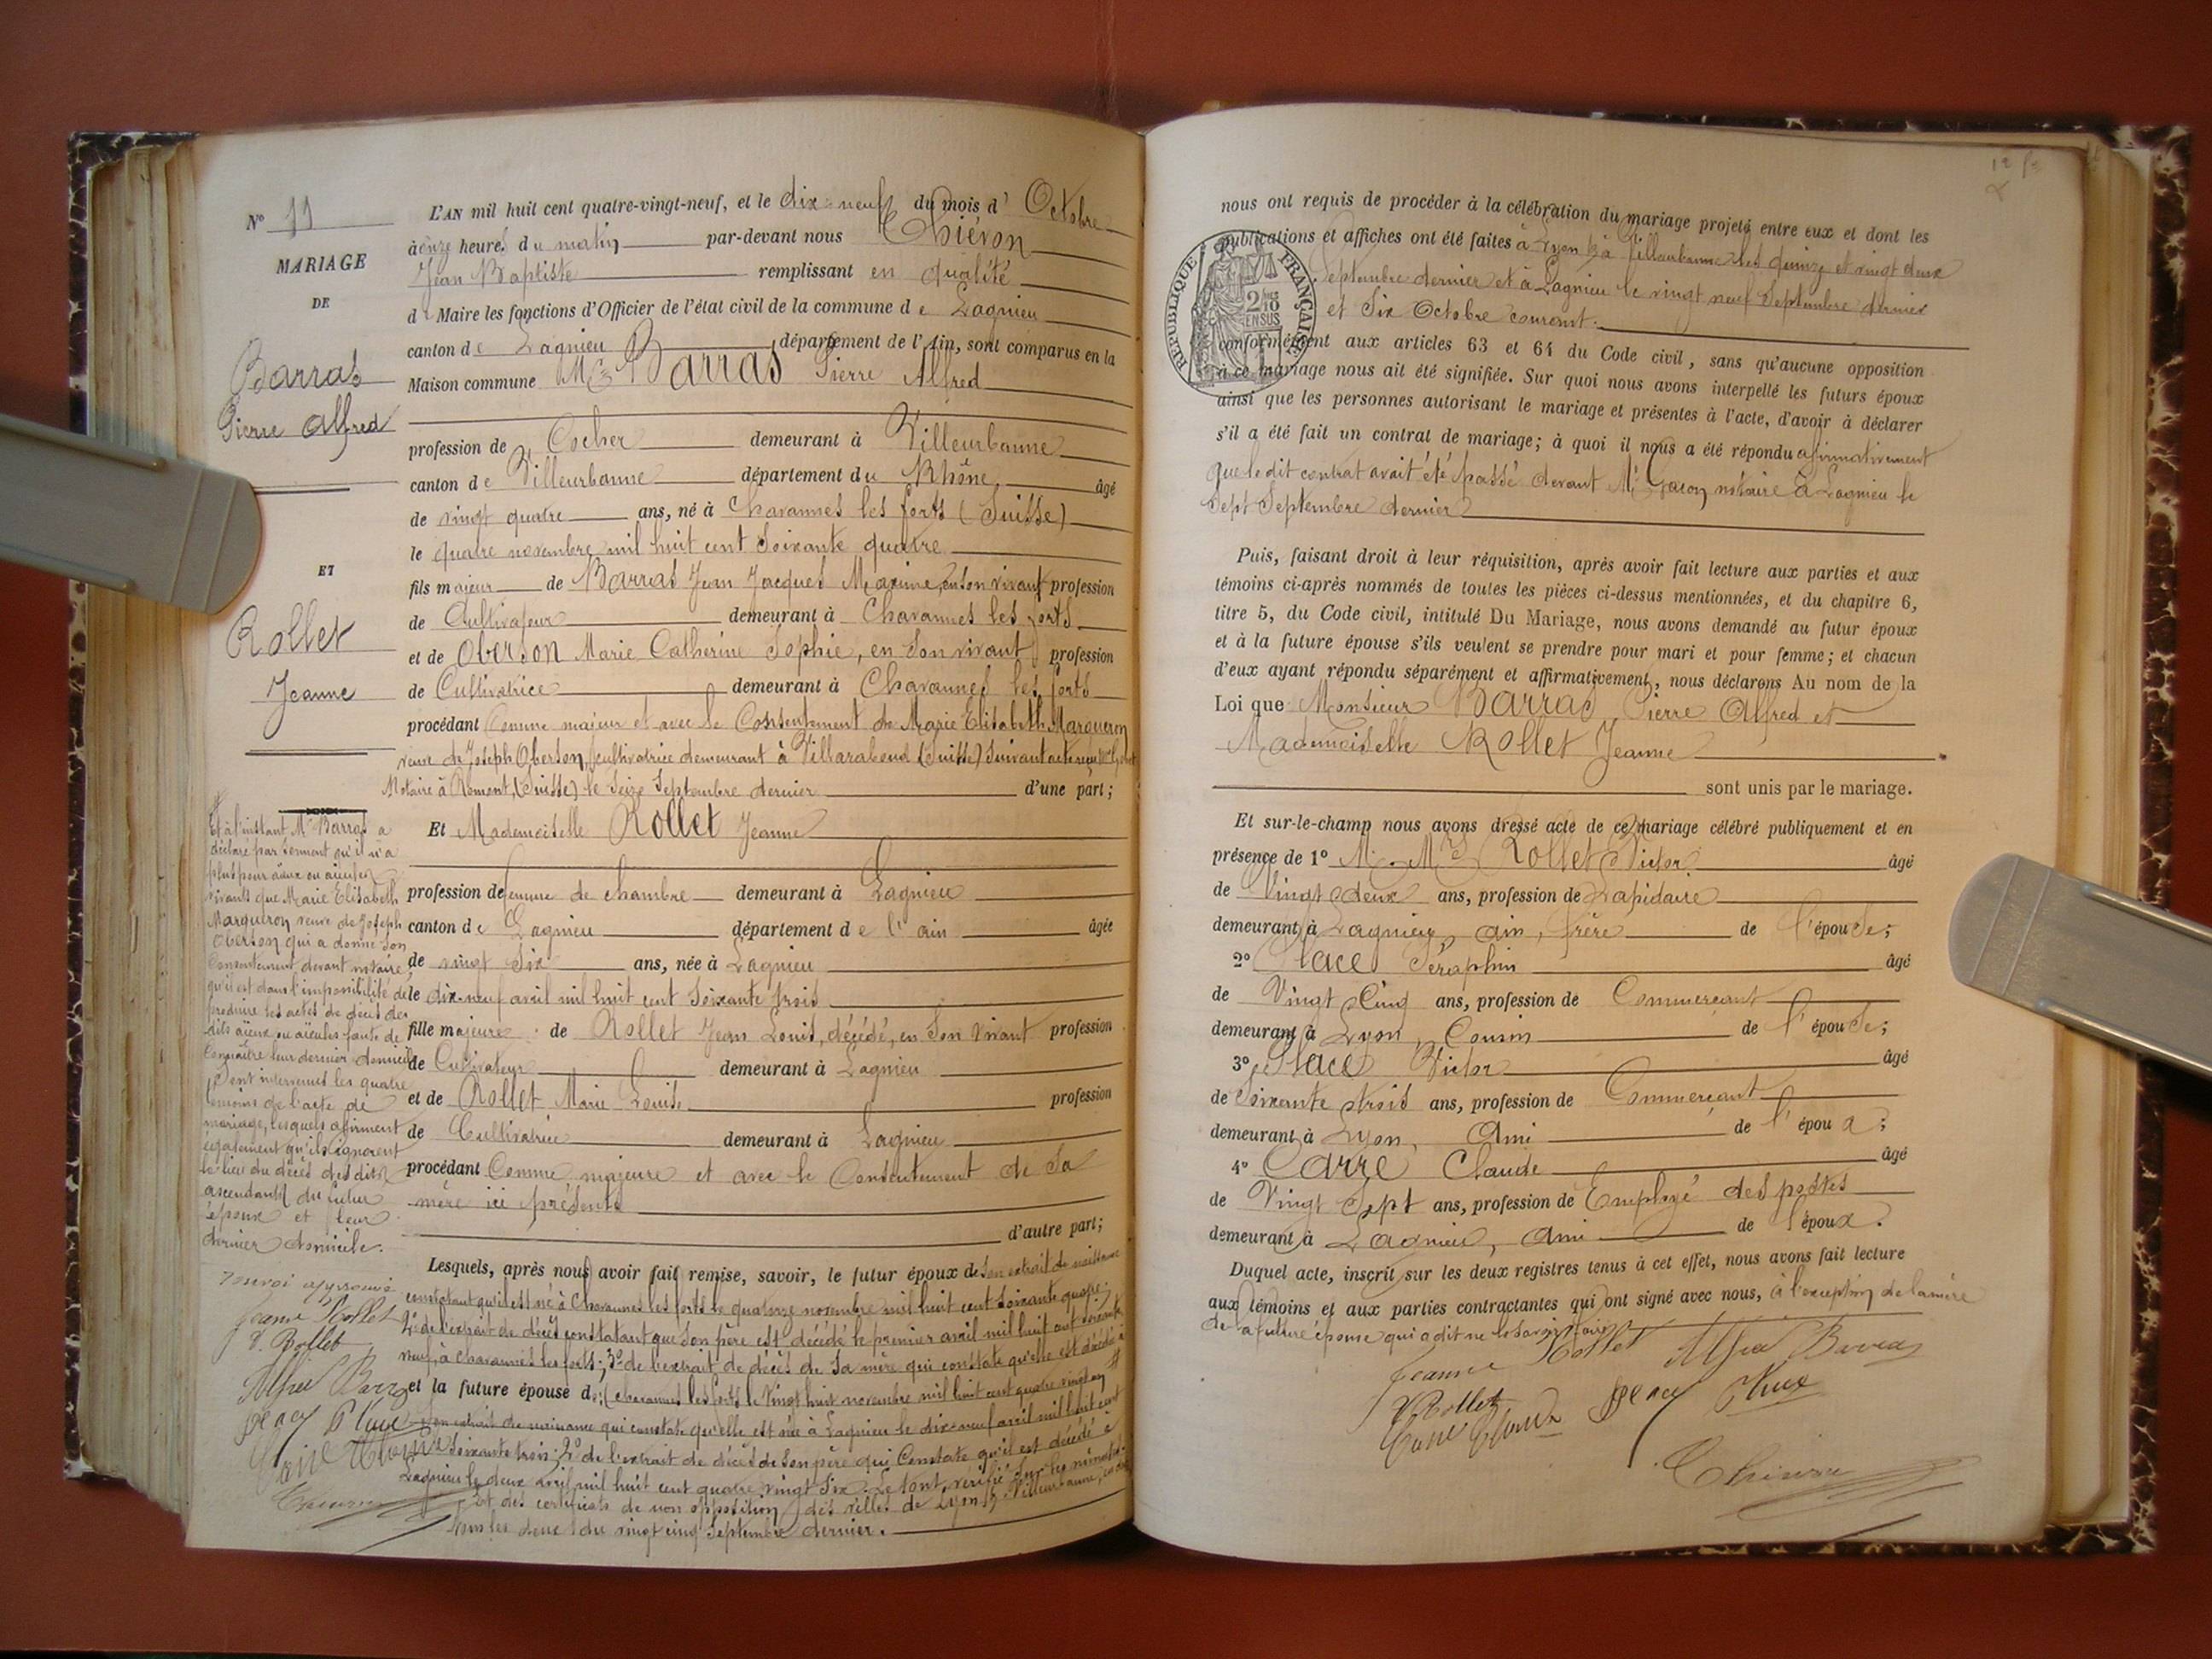 N° 11
MARIAGE
DE
Barras
Pierre Alfred
ET
Rollet
Jeanne
L'AN mil huit cent quatre-vingt-neuf, et le dix-neuf du mois d' Octobre
à onze heures du matin par-devant nous Thiéron
Jean Baptiste remplissant en qualité
de Maire les fonctions d'Officier de l'état civil de la commune de Lagnieu
canton de Lagnieu département de l'Ain, sont comparus en la
Maison commune Mr Barras Pierre Alfred
profession de Cocher demeurant à Villeurbanne
canton de Villeurbanne département du Rhône, âgé
de vingt quatre ans, né à Chavannes les forts (Suisse)
le quatre novembre mil huit cent soixante quatre
fils majeur de Barras Jean Jacques Maxime, en son vivant profession
de Cultivateur demeurant à Chavannes les forts
et de Oberson Marie Catherine Sophie, en son vivant profession
de Cultivatrice demeurant à Chavannes les forts
procédant Comme majeur et avec le Consentement de Marie Elisabeth Margueron
veuve de Joseph Oberson, cultivatrice demeurant à Villaraboud (Suisse) suivant acte reçu
Notaire à Romont, (Suisse) le Seize Septembre dernier d'une part;
Et Mademoiselle Rollet Jeanne
profession de femme de chambre demeurant à Lagnieu
canton de Lagnieu département de l'ain âgée
de vingt six ans, née à Lagnieu
le dix-neuf avril mil huit cent soixante trois
fille majeure de Rollet Jean Louis, décédé, en son vivant profession
de Cultivateur demeurant à Lagnieu
et de Rollet Marie Louise profession
de Cultivatrice demeurant à Lagnieu
procédant Comme majeure et avec le Consentement de sa
mère ici présente
d'autre part;
Lesquels, après nous avoir fait remise, savoir, le futur époux de son extrait de naissance
constatant qu'il est né à Chavannes les forts le quatorze novembre mil huit cent soixante quatre;
2° de l'extrait de décès constatant que son père est décédé le premier avril mil huit cent soixante
neuf, à Chavannes les forts; 3° de l'extrait de décès de sa mère qui constate qu'elle est décédée à
et la future épouse de: (Chavannes les forts le vingt huit novembre mil huit cent quatre vingt un
son extrait de naissance qui constate qu'elle est née à Lagnieu le dix-neuf avril mil huit cent
soixante trois; 2° de l'extrait de décès de son père qui Constate qu'il est décédé à
Lagnieu le deux avril mil huit cent quatre vingt six. Le tout vérifié sur les
Et des certificats de non opposition des villes de Lyon & Villeurbanne,
tous les deux du vingt cinq Septembre dernier.
Et à l'instant Mr Barras a
déclaré par serment qu'il n'a
plus pour aïeux ou aïeules
vivants que Marie Elisabeth
Margueron veuve de Joseph
Oberson qui a donné son
Consentement devant notaire,
qu'il est dans l'impossibilité de
produire les actes de décès des
dits aïeux ou aïeules faute de
Connaître leur dernier domicile
Sont intervenus les quatre
témoins de l'acte de
mariage, lesquels affirment
également qu'ils ignorent
le lieu du décès des dits
ascendants du futur
époux et leur
dernier domicile.
renvoi approuvé
Jeanne Rollet
V. Rollet
Alfred Barras
place
nous ont requis de procéder à la célébration du mariage projeté entre eux et dont les
publications et affiches ont été faites à Lyon & à Villeurbanne les quinze et vingt deux
Septembre dernier et à Lagnieu le vingt neuf Septembre dernier
et Six Octobre courant.
RÉPUBLIQUE FRANÇAISE
conformément aux articles 63 et 64 du Code civil, sans qu'aucune opposition
à ce mariage nous ait été signifiée. Sur quoi nous avons interpellé les futurs époux
ainsi que les personnes autorisant le mariage et présentes à l'acte, d'avoir à déclarer
s'il a été fait un contrat de mariage; à quoi il nous a été répondu affirmativement
que le dit contrat avait été passé devant Me notaire à Lagnieu le
Sept Septembre dernier
Puis, faisant droit à leur réquisition, après avoir fait lecture aux parties et aux
témoins ci-après nommés de toutes les pièces ci-dessus mentionnées, et du chapitre 6,
titre 5, du Code civil, intitulé Du Mariage, nous avons demandé au futur époux
et à la future épouse s'ils veulent se prendre pour mari et pour femme; et chacun
d'eux ayant répondu séparément et affirmativement, nous déclarons Au nom de la
Loi que Monsieur Barras Pierre Alfred et
Mademoiselle Rollet Jeanne
sont unis par le mariage.
Et sur-le-champ nous avons dressé acte de ce mariage célébré publiquement et en
présence de 1° M. Mrs Rollet Victor âgé
de Vingt deux ans, profession de Lapidaire
demeurant à Lagnieu, ain, frère de l'épouse;
2° Place Séraphin âgé
de Vingt Cinq ans, profession de Commerçant
demeurant à Lyon, Cousin de l'épouse;
3° Place Victor âgé
de Soixante trois ans, profession de Commerçant
demeurant à Lyon, Ami de l'époux;
4° Carre Claude âgé
de Vingt Sept ans, profession de Employé des postes
demeurant à Lagnieu, Ami de l'époux.
Duquel acte, inscrit sur les deux registres tenus à cet effet, nous avons fait lecture
aux témoins et aux parties contractantes qui ont signé avec nous, à l'exception de la mère
de la future épouse qui a dit ne le savoir faire
Jeanne Rollet Alfred Barras
V Rollet place